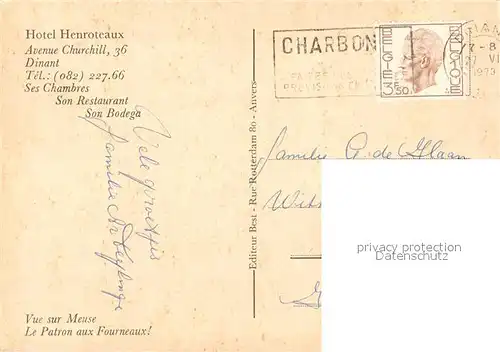 Hotel Henroteaux
Avenue Churchill, 36
Dinant
Tél.: (082) 227.66
Ses Chambres
Son Restaurant
Son Bodega
Vele groetjes
familie
Vue sur Meuse
Le Patron aux Fourneaux!
Editeur Best - Rue Rotterdam 80 - Anvers
CHARBON
BELGIE
BELGIQUE
3F50
7-8
27 VI
1973
familie A. de Haan
privacy protection
Datenschutz